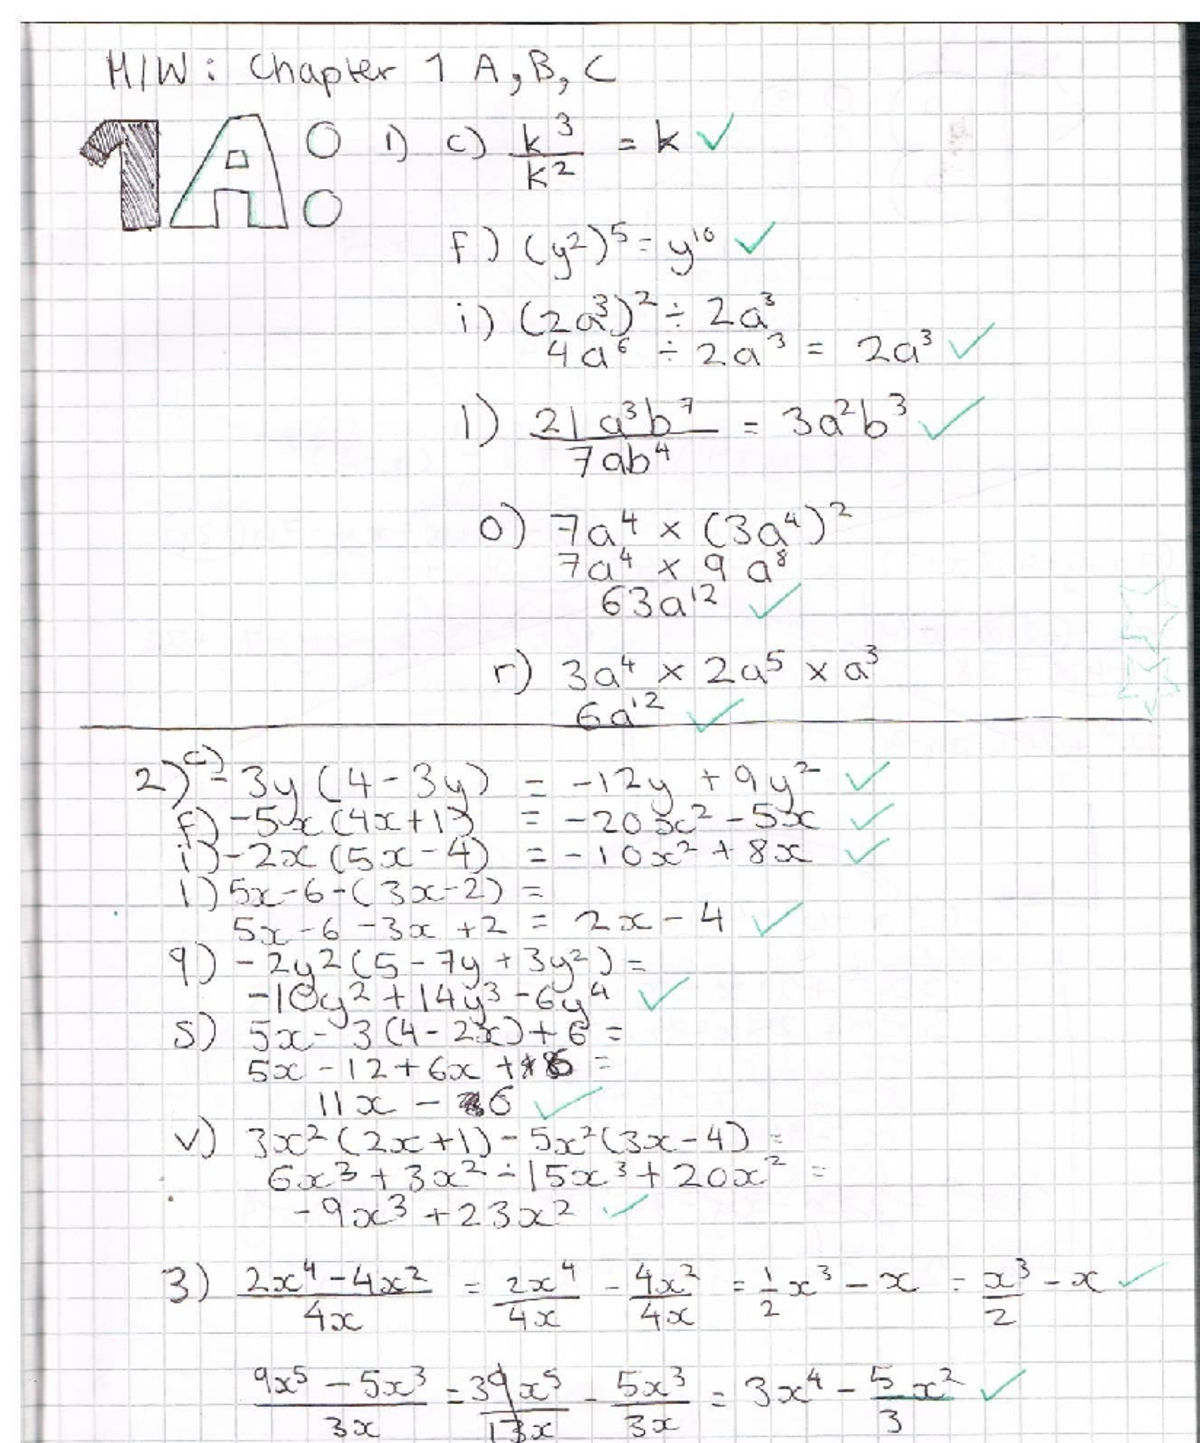 H/W: Chapter 1 A, B, C
1A: 1) c) k³/k² = k ✓
f) (y²)⁵ = y¹⁰ ✓
i) (2a³)² ÷ 2a³
4a⁶ ÷ 2a³ = 2a³ ✓
l) 21a³b⁷/7ab⁴ = 3a²b³ ✓
o) 7a⁴ × (3a⁴)²
7a⁴ × 9a⁸
63a¹² ✓
r) 3a⁴ × 2a⁵ × a³
6a¹² ✓
2) c) -3y(4-3y) = -12y + 9y² ✓
f) -5x(4x+1) = -20x² - 5x ✓
i) -2x(5x-4) = -10x² + 8x ✓
l) 5x-6-(3x-2) =
5x-6-3x+2 = 2x-4 ✓
q) -2y²(5-7y+3y²) =
-10y²+14y³-6y⁴ ✓
s) 5x-3(4-2x)+6 =
5x-12+6x+6 =
11x-6 ✓
v) 3x²(2x+1)-5x²(3x-4) =
6x³+3x²-15x³+20x² =
-9x³+23x² ✓
3) (2x⁴-4x²)/4x = 2x⁴/4x - 4x²/4x = 1/2 x³ - x = x³/2 - x ✓
(9x⁵-5x³)/3x = 3 9x⁵/1 3x - 5x³/3x = 3x⁴ - 5/3 x² ✓